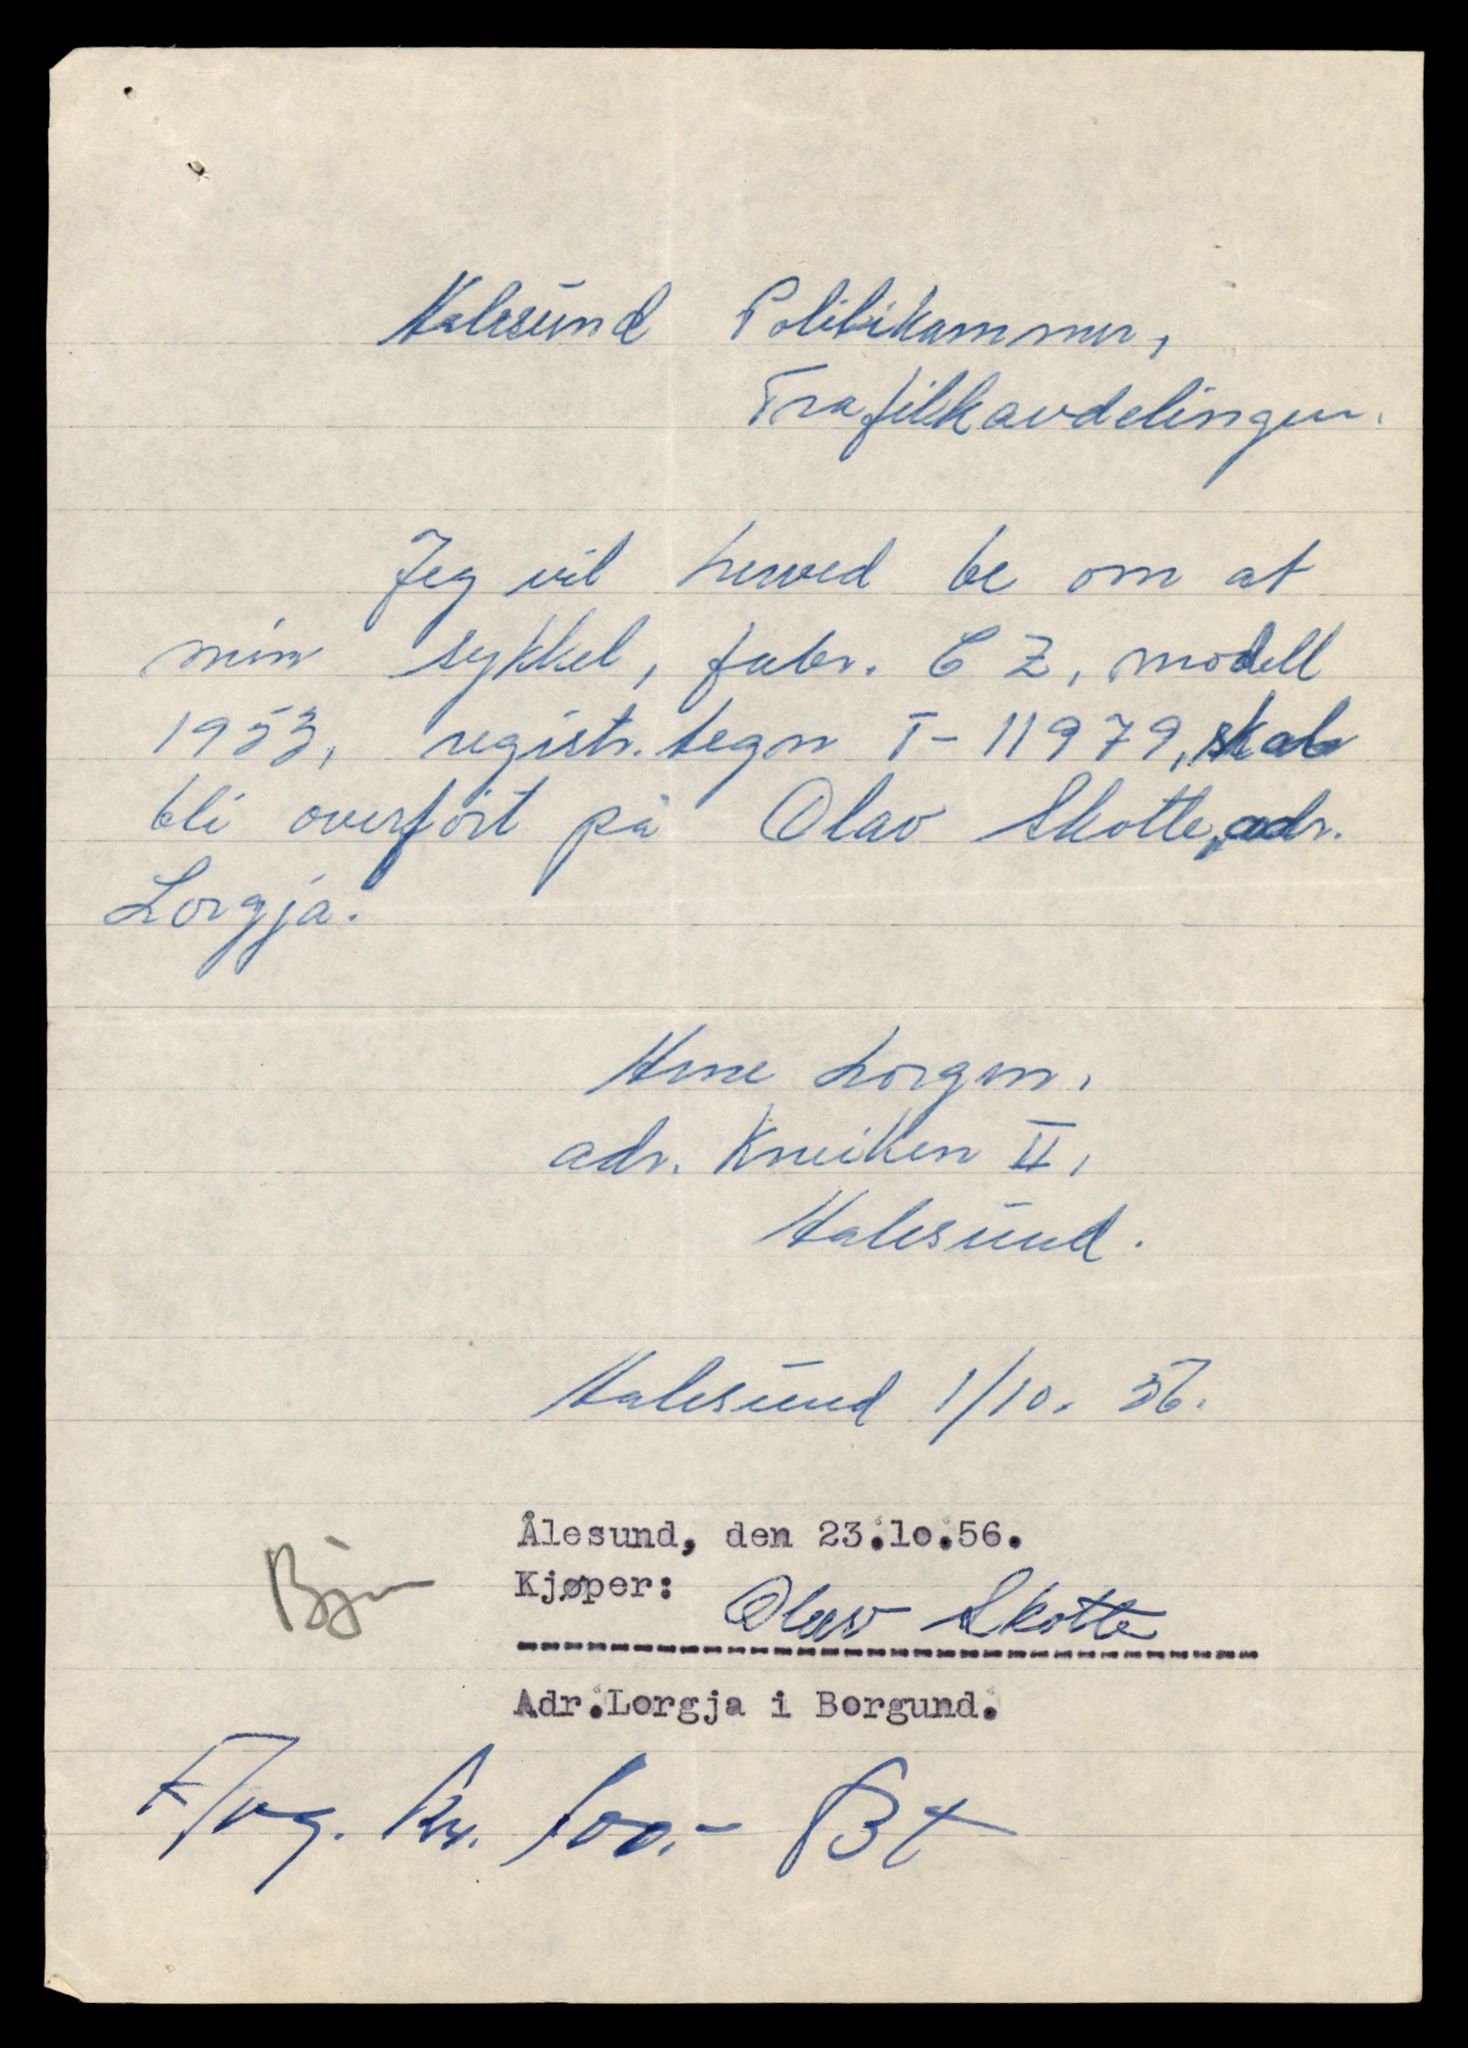 Aalesund Politikammer,
Trafikkavdelingen.
Jeg vil herved be om at
min sykkel, fabr. C Z, modell
1953, registr. tegn T-11979, skal
bli overført på Olav Skotte, adr.
Lorgja.
Arne Lorgen,
adr. Kneiken II,
Aalesund.
Aalesund 1/10. 56.
Ålesund, den 23.10.56.
Kjøper: Olav Skotte
Adr. Lorgja i Borgund.
kr. 100.- Bt